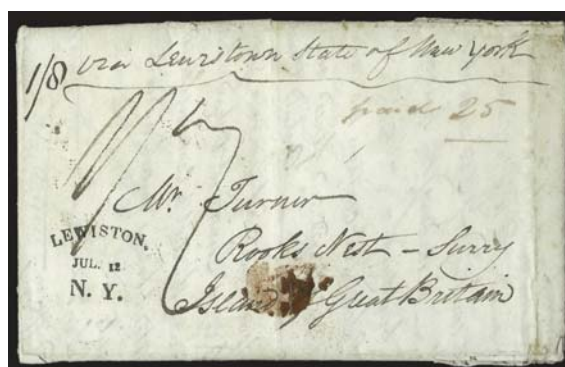 1/8 via Lewistown State of New York
paid 25
Mr Turner
Rooks Nest – Surry
Island of Great Britain
LEWISTON,
JUL. 12
N. Y.